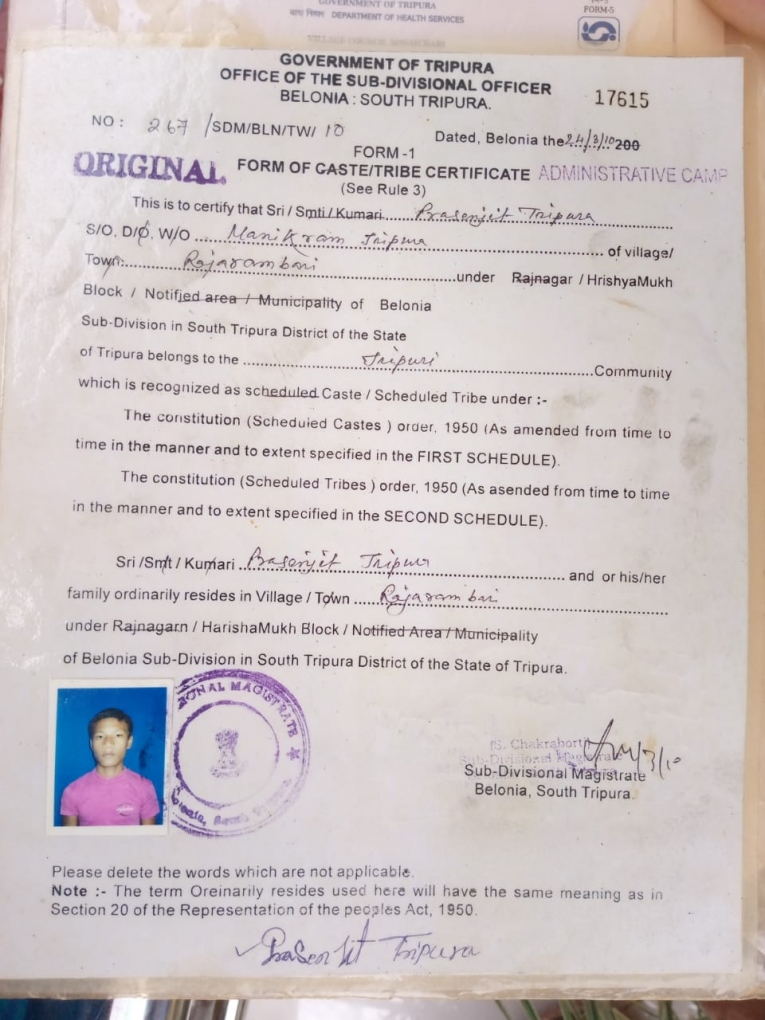 GOVERNMENT OF TRIPURA
DEPARTMENT OF HEALTH SERVICES
FORM-5
GOVERNMENT OF TRIPURA
OFFICE OF THE SUB-DIVISIONAL OFFICER
BELONIA : SOUTH TRIPURA.
17615
NO : 267 /SDM/BLN/TW/ 10
Dated, Belonia the 24/3/10 200
FORM -1
ORIGINAL FORM OF CASTE/TRIBE CERTIFICATE ADMINISTRATIVE CAMP
(See Rule 3)
This is to certify that Sri / Smti / Kumari ..... Prasenjit Tripura
S/O, D/O, W/O ... Manikram Tripura ..... of village/
Town: ..... Rajarambari ..... under Rajnagar / HrishyaMukh
Block / Notified area / Municipality of Belonia
Sub-Division in South Tripura District of the State
of Tripura belongs to the ..... Tripuri ..... Community
which is recognized as scheduled Caste / Scheduled Tribe under :-
The constitution (Scheduled Castes ) order, 1950 (As amended from time to
time in the manner and to extent specified in the FIRST SCHEDULE).
The constitution (Scheduled Tribes ) order, 1950 (As asended from time to time
in the manner and to extent specified in the SECOND SCHEDULE).
Sri /Smt / Kumari .. Prasenjit Tripura ..... and or his/her
family ordinarily resides in Village / Town .... Rajarambari .....
under Rajnagarn / HarishaMukh Block / Notified Area / Municipality
of Belonia Sub-Division in South Tripura District of the State of Tripura.
IONAL MAGISTRATE ★
S. Chakraborty
Sub-Divisional Magistrate
Sub-Divisional Magistrate
Belonia, South Tripura.
Please delete the words which are not applicable.
Note :- The term Oreinarily resides used here will have the same meaning as in
Section 20 of the Representation of the peoples Act, 1950.
Prasenjit Tripura